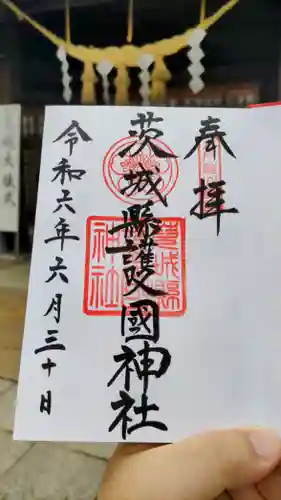 奉拝
茨城縣護國神社
茨城縣護國神社
令和六年六月三十日